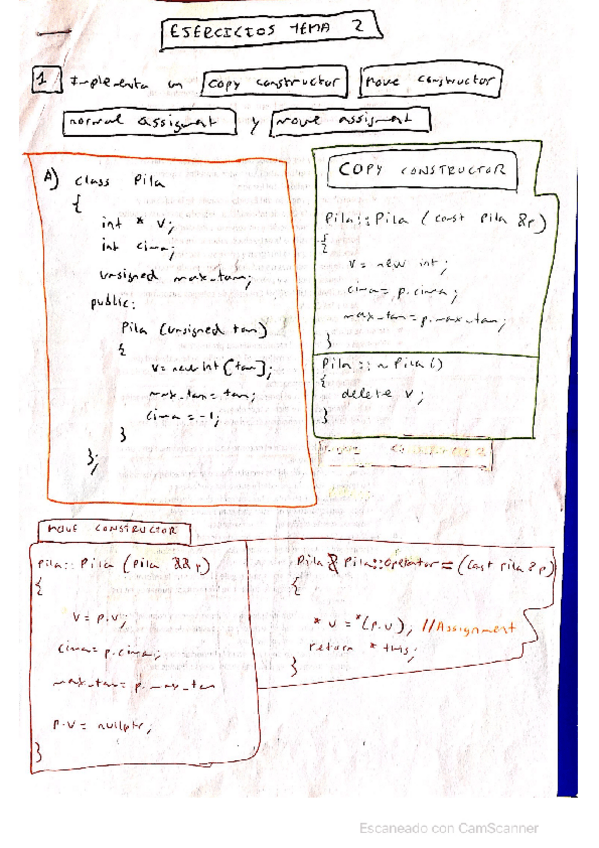 EJERCICIOS TEMA 2
1 Implementa un copy constructor move constructor
normal assigment y move assigment
A) class Pila
{
int * v;
int cima;
unsigned max_tam;
public:
Pila (unsigned tam)
{
v= new int [tam];
max_tam= tam;
cima = -1;
}
};
COPY CONSTRUCTOR
Pila::Pila (const Pila &p)
{
v = new int;
cima= p.cima;
max_tam=p.max_tam;
}
Pila::~Pila()
{
delete v;
}
MOVE CONSTRUCTOR
Pila:: Pila (Pila &&p)
{
v = p.v;
cima= p.cima;
max_tam= p.max_tam
p.v = nullptr;
}
Pila & Pila::operator= (const Pila &p)
{
* v =*(p.v); //Assignment
return * this;
}
Escaneado con CamScanner